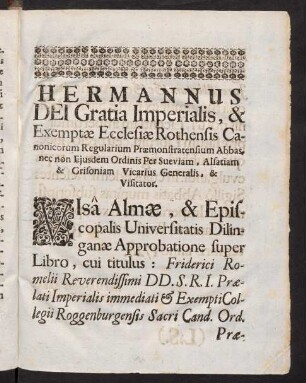 HERMANNUS
DEI Gratia Imperialis, &
Exemptæ Ecclesiæ Rothensis Ca-
nonicorum Regularium Præmonstratensium Abbas,
nec non Ejusdem Ordinis Per Sueviam, Alsatiam
& Grisoniam Vicarius Generalis, &
Visitator.
VIsâ Almæ, & Epis-
copalis Universitatis Dilin-
ganæ Approbatione super
Libro, cui titulus: Friderici Ro-
melii Reverendissimi DD. S. R. I. Præ-
lati Imperialis immediati & Exempti Col-
legii Roggenburgensis Sacri Cand. Ord.
Præ-